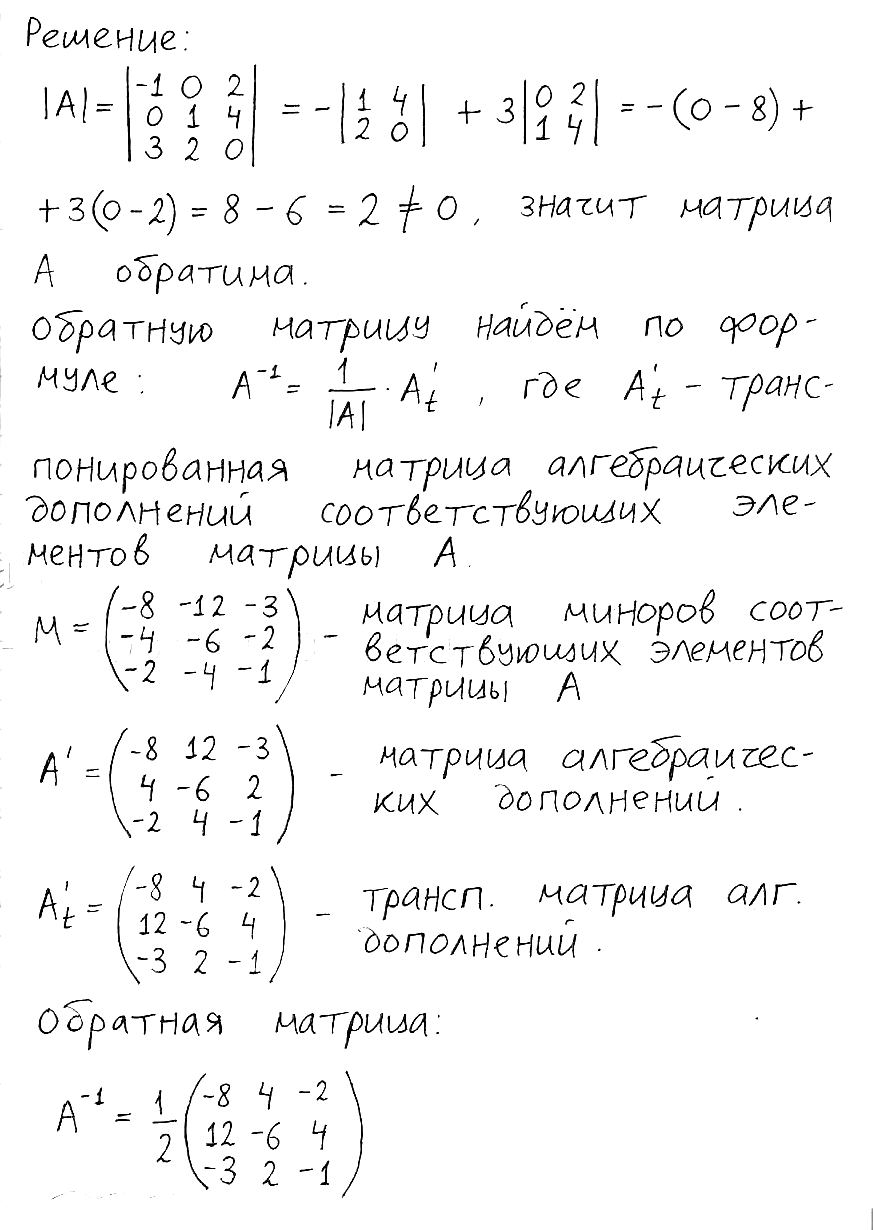 Решение:
|A| = |-1 0 2; 0 1 4; 3 2 0| = -|1 4; 2 0| + 3|0 2; 1 4| = -(0 - 8) +
+ 3(0 - 2) = 8 - 6 = 2 ≠ 0, значит матрица
A обратима.
Обратную матрицу найдём по фор-
муле: A⁻¹ = 1/|A| · A'ₜ, где A'ₜ - транс-
понированная матрица алгебраических
дополнений соответствующих эле-
ментов матрицы A.
M = (-8 -12 -3; -4 -6 -2; -2 -4 -1) - матрица миноров соот-
ветствующих элементов
матрицы A
A' = (-8 12 -3; 4 -6 2; -2 4 -1) - матрица алгебраичес-
ких дополнений.
A'ₜ = (-8 4 -2; 12 -6 4; -3 2 -1) - трансп. матрица алг.
дополнений.
Обратная матрица:
A⁻¹ = 1/2 (-8 4 -2; 12 -6 4; -3 2 -1)